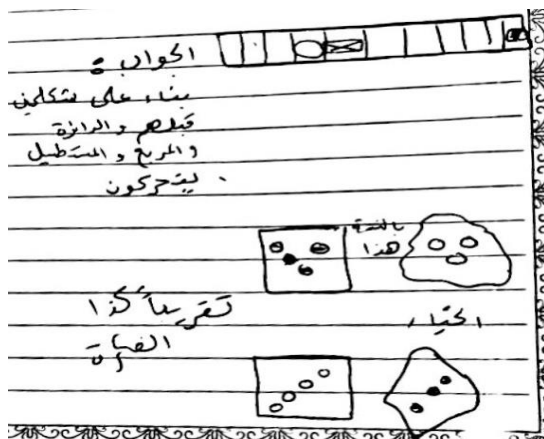 الجواب :
بناء على شكلين
قبلهم والدائرة
والمربع والمستطيل
يتحركون .
بالنسبة
هذا
تقريباً كذا
الفكرة